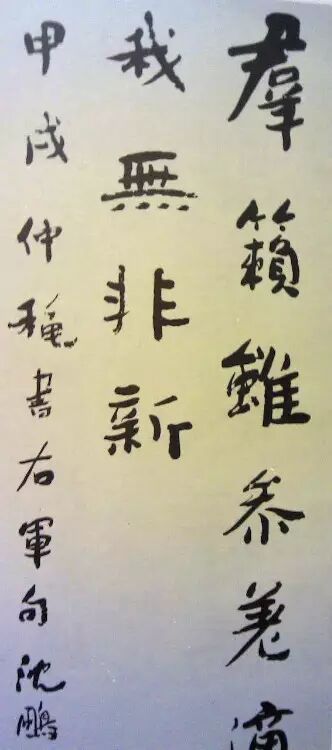 羣籟雖参差適
我無非新
甲戌仲穐書右軍句沈鵬